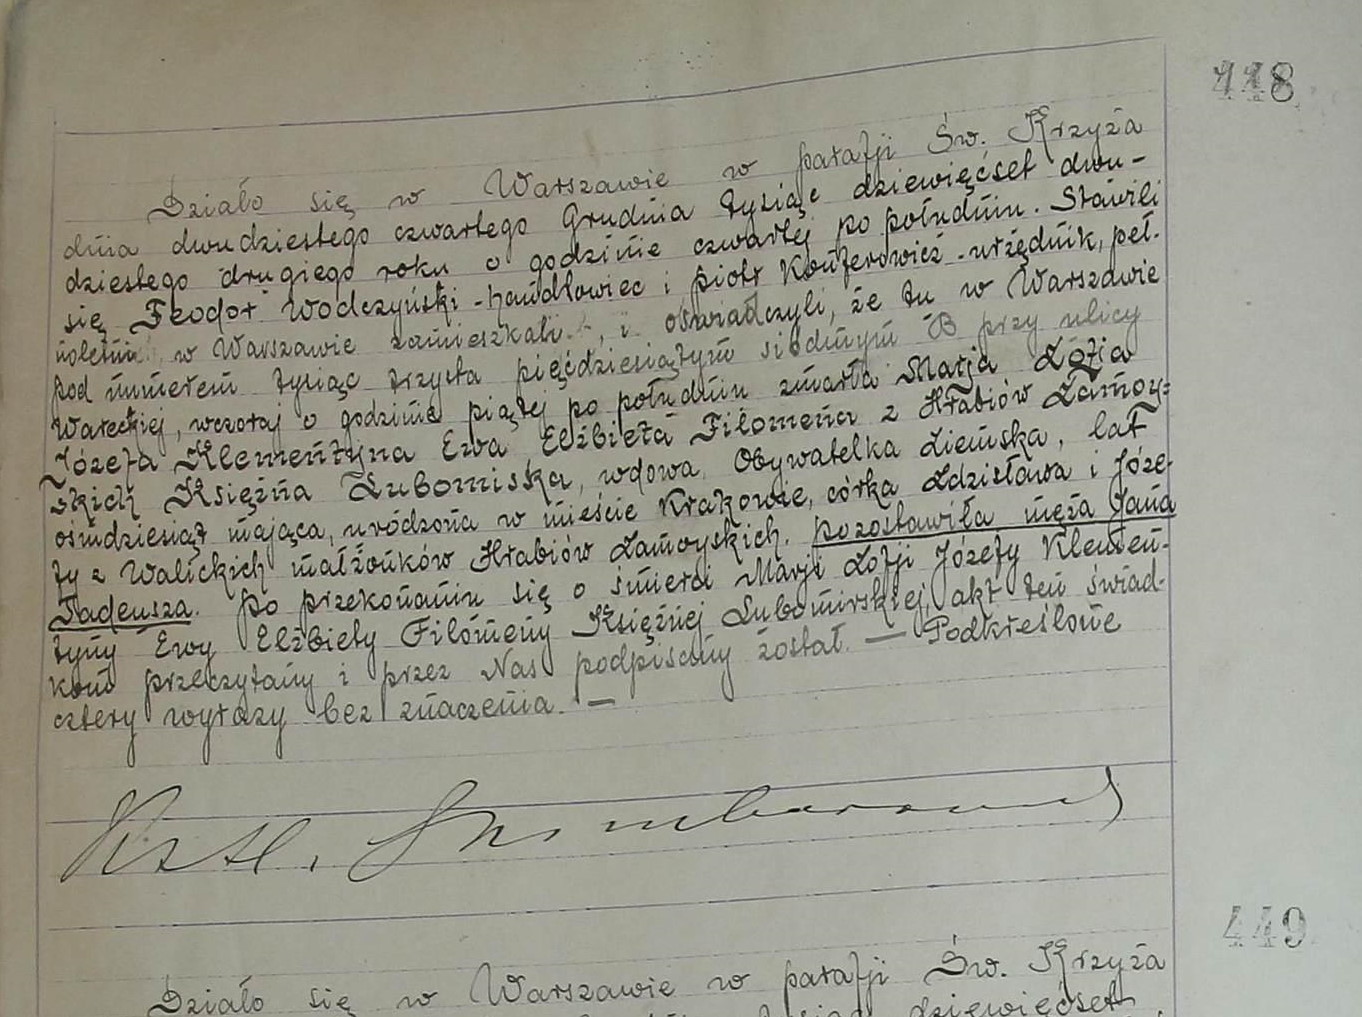 448
Działo się w Warszawie w parafji Św. Krzyża
dnia dwudziestego czwartego Grudnia tysiąc dziewięćset dwu-
dziestego drugiego roku o godzinie czwartej po południu. Stawili
się Feodor Wodczyński - handlowiec i piotr Konferowicz - urzędnik, peł-
noletni w Warszawie zamieszkali, i oświadczyli, że tu w Warszawie
pod numerem tysiąc trzysta pięćdziesiątym siódmym B przy ulicy
Wareckiej, wczoraj o godzinie piątej po południu zmarła Marja Zofia
Józefa Klementyna Ewa Elżbieta Filomena z Hrabiów Zamoy-
skich Księżna Lubomiska, wdowa, Obywatelka Ziemska, lat
ośmdziesiąt mająca, urodzona w mieście Krakowie, córka Zdzisława i Józe-
fy z Walickich małżonków Hrabiów Zamoyskich. pozostawiła męża Jana
Tadeusza. po przekonaniu się o śmierci Marji Zofji Józefy Klemen-
tyny Ewy Elżbiety Filomeny Księżnej Lubomirskiej, akt ten świad-
kom przeczytany i przez Nas podpisany został. — Podkreślone
cztery wyrazy bez znaczenia. —
449
Działo się w Warszawie w parafji Św. Krzyża
dziewięćset